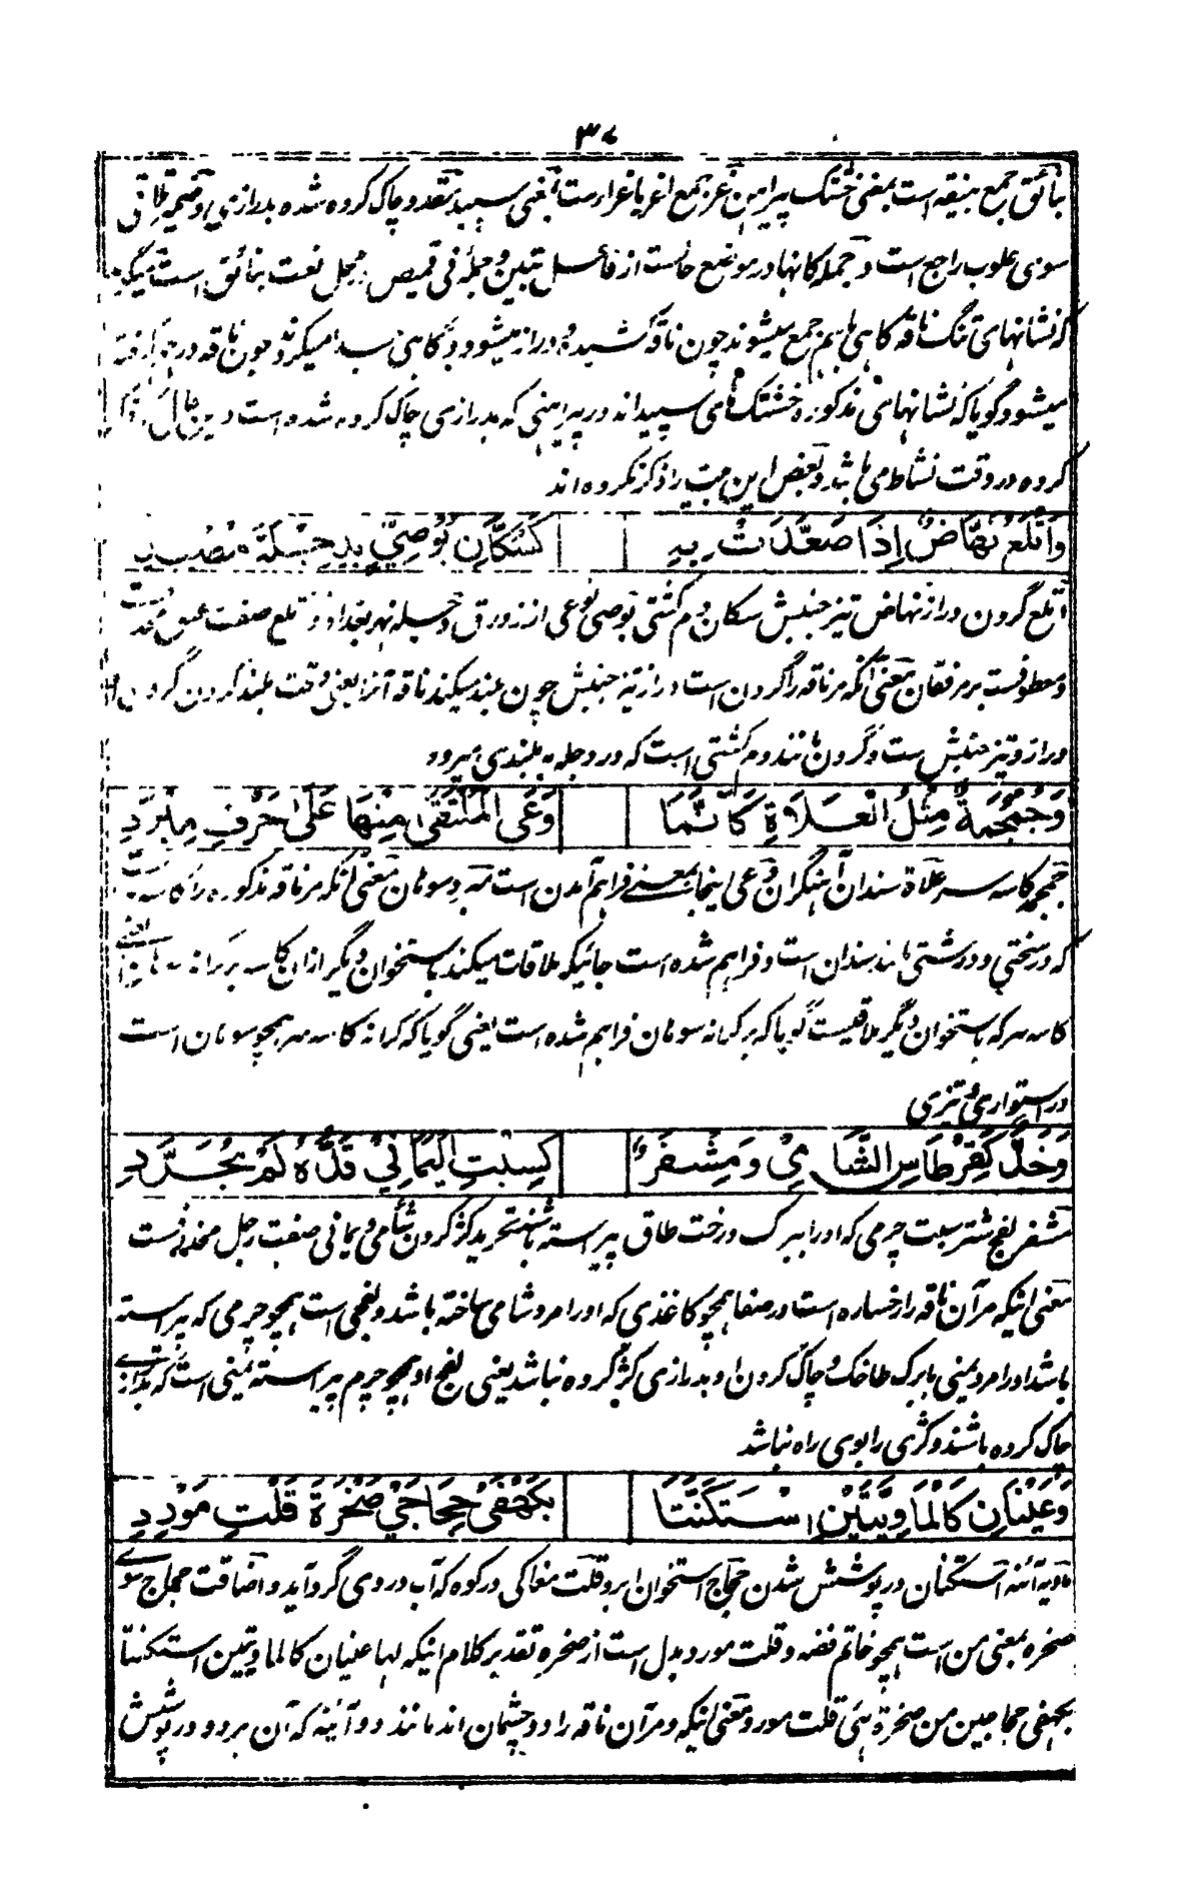 ٣٧
بنائق جمع بنیقه است بمعنی خشتک پیراهن غر جمع اغر یا غرا رست بمعنی سپید مقدد چاک کرده شده بدرازی و ضمیر تلاقی
سوی علوب راجع است و جمله کانها در موضع حالست از فاعل تبین و جمله فی قمیص محل نعت بنائق است میگوید
که نشانهای تنگ ناقه گاهی باهم جمع میشوند چون ناقه کشیده و دراز میشود و گاهی جدا میگردند چون ناقه در
میشود گویا که نشانهای مذکوره خشتک های سپید اند در پیراهنی که بدرازی چاک کرده شده است
کرده در وقت نشاط می باشد و بعض این بیت را ذکر نکرده اند
وَأَتْلَعُ نَهَّاضٌ إِذَا صَعَّدَتْ بِهِ كَسُكَّانِ بُوصِيٍّ بِدِجْلَةَ مُصْعِدِ
اتلع گردن دراز نهاض تیز جنبش سکان دم کشتی بوصی نوعی از زورق دجله نهر بغداد و اتلع صفت عنق محذوفست
و معطوفست بر مرفقان معنی آنکه مر ناقه را گردن است دراز تیز جنبش چون بلند میکند ناقه آنرا یعنی وقت بلند کردن گردن
دراز و تیز جنبش ست و گردن مانند دم کشتی است که در دجله به بلندی میرود
وَجُمْجُمَةٌ مِثْلُ الْعَلَاةِ كَأَنَّمَا وَعَى الْمُلْتَقَى مِنْهَا عَلَى حَرْفِ مِبْرَدِ
جمجمه کاسه سر علاة سندان آهنگران وعی اینجا بمعنی فراهم آمدن است مبرد سوهان معنی آنکه مر ناقه مذکوره را کاسه سریست
که در سختی و درشتی مانند سندان است و فراهم شده است جائیکه ملاقات میکند باستخوان دیگر ازان کاسه بر کرانه سوهان یعنی
کاسه سر که باستخوان دیگر ملاقیست گویا که بر کرانه سوهان فراهم شده است یعنی گویا که کرانه کاسه سر همچو سوهان است
در استواری و تیزی
وَخَدٌّ كَقِرْطَاسِ الشَّامِيْ وَمِشْفَرٌ كَسِبْتِ الْيَمَانِيْ قَدُّهُ لَمْ يُجَرَّدِ
مشفر لفج شتر سبت چرمی که او را ببرگ درخت طاق پیراسته باشند تحرید کژ کردن شامی و یمانی صفت رجل محذوفست
معنی اینکه مر آن ناقه را رخساره است در صفا همچو کاغذی که او را مرد شامی ساخته باشد و لفجی است همچو چرمی که پیراسته
باشد او را مرد یمنی بابرگ طاخک و چاک کردن او بدرازی کژ کرده نباشد یعنی لفج او همچو چرم پیراسته یمنی است که بدرازی
چاک کرده باشند و کژی را بوی راه نباشد
وَعَيْنَانِ كَالْمَاوِيَّتَيْنِ اسْتَكَنَّتَا بِكَهْفَيْ حِجَاجَيْ صَخْرَةٍ قَلْتِ مَوْرِدِ
ماویه آئنه استکنان در پوشش شدن حجاج استخوان ابرو قلت مغاکی در کوه که آب در وی گرد آید و اضافت حجاج سوی
صخره بمعنی من است همچو خاتم فضه و قلت مورد بدل است از صخره تقدیر کلام اینکه لها عینان کالماویتین استکنتا
بکهفی حجاجین من صخرة هی قلت مورد و معنی اینکه و مر آن ناقه را دو چشمان اند مانند دو آئینه که آن هر دو در پوشش